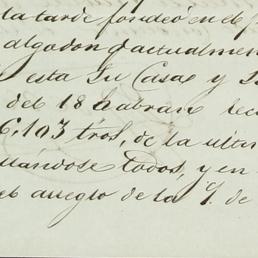 la tarde fondeó en
algodon q actualmen
esta Sn Casas y
del 18 habran
6,103 tros, de la ulti
llándose todos, y en
el arreglo de la J. de